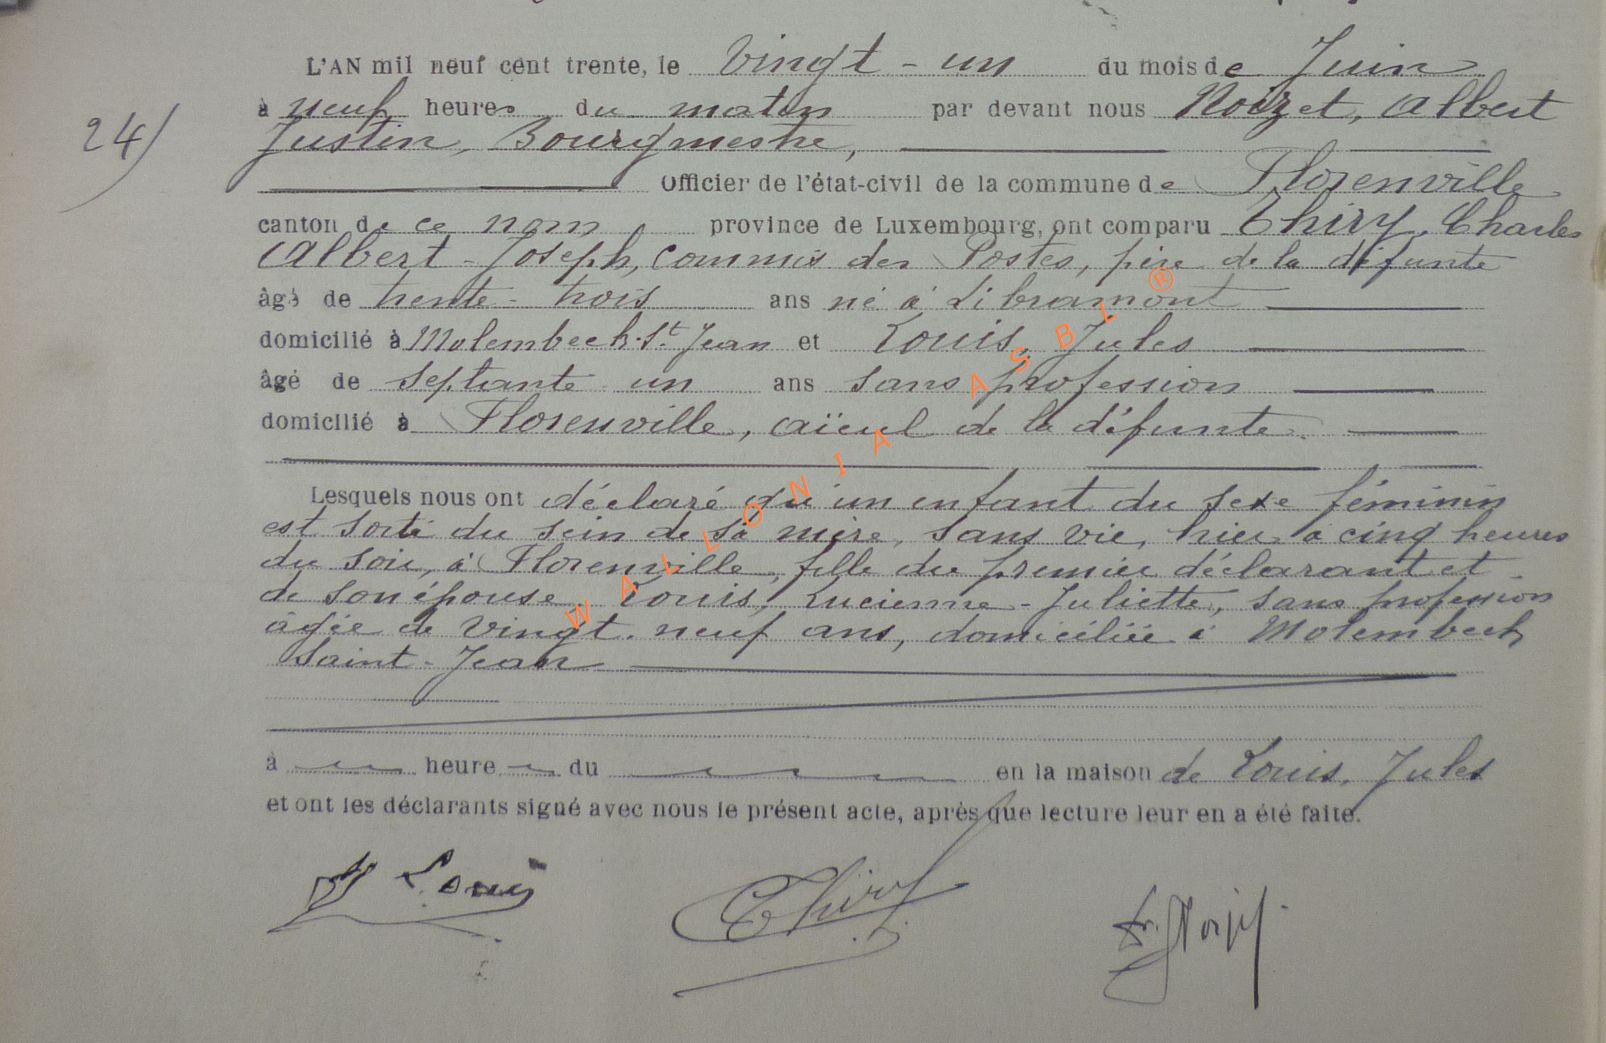 L'AN mil neuf cent trente, le vingt-un du mois de Juin
24) à neuf heures du matin par devant nous Noizet, Albert
Justin, Bourgmestre,
Officier de l'état-civil de la commune de Florenville
canton de ce nom province de Luxembourg, ont comparu Thiry, Charles
Albert-Joseph, commis des Postes, père de la défunte
âgé de trente-trois ans né à Libramont
domicilié à Molembeek-St Jean et Louis, Jules
âgé de septante un ans sans profession
domicilié à Florenville, aïeul de la défunte.
Lesquels nous ont déclaré qu'un enfant du sexe féminin
est sorti du sein de sa mère, sans vie, hier à cinq heures
du soir, à Florenville, fille du premier déclarant et
de son épouse Louis, Lucienne-Juliette, sans profession
âgée de vingt-neuf ans, domiciliée à Molembeek
Saint-Jean
à heure du en la maison de Louis, Jules
et ont les déclarants signé avec nous le présent acte, après que lecture leur en a été faite.
J Louis Thiry
WALLONIA ASBL ®